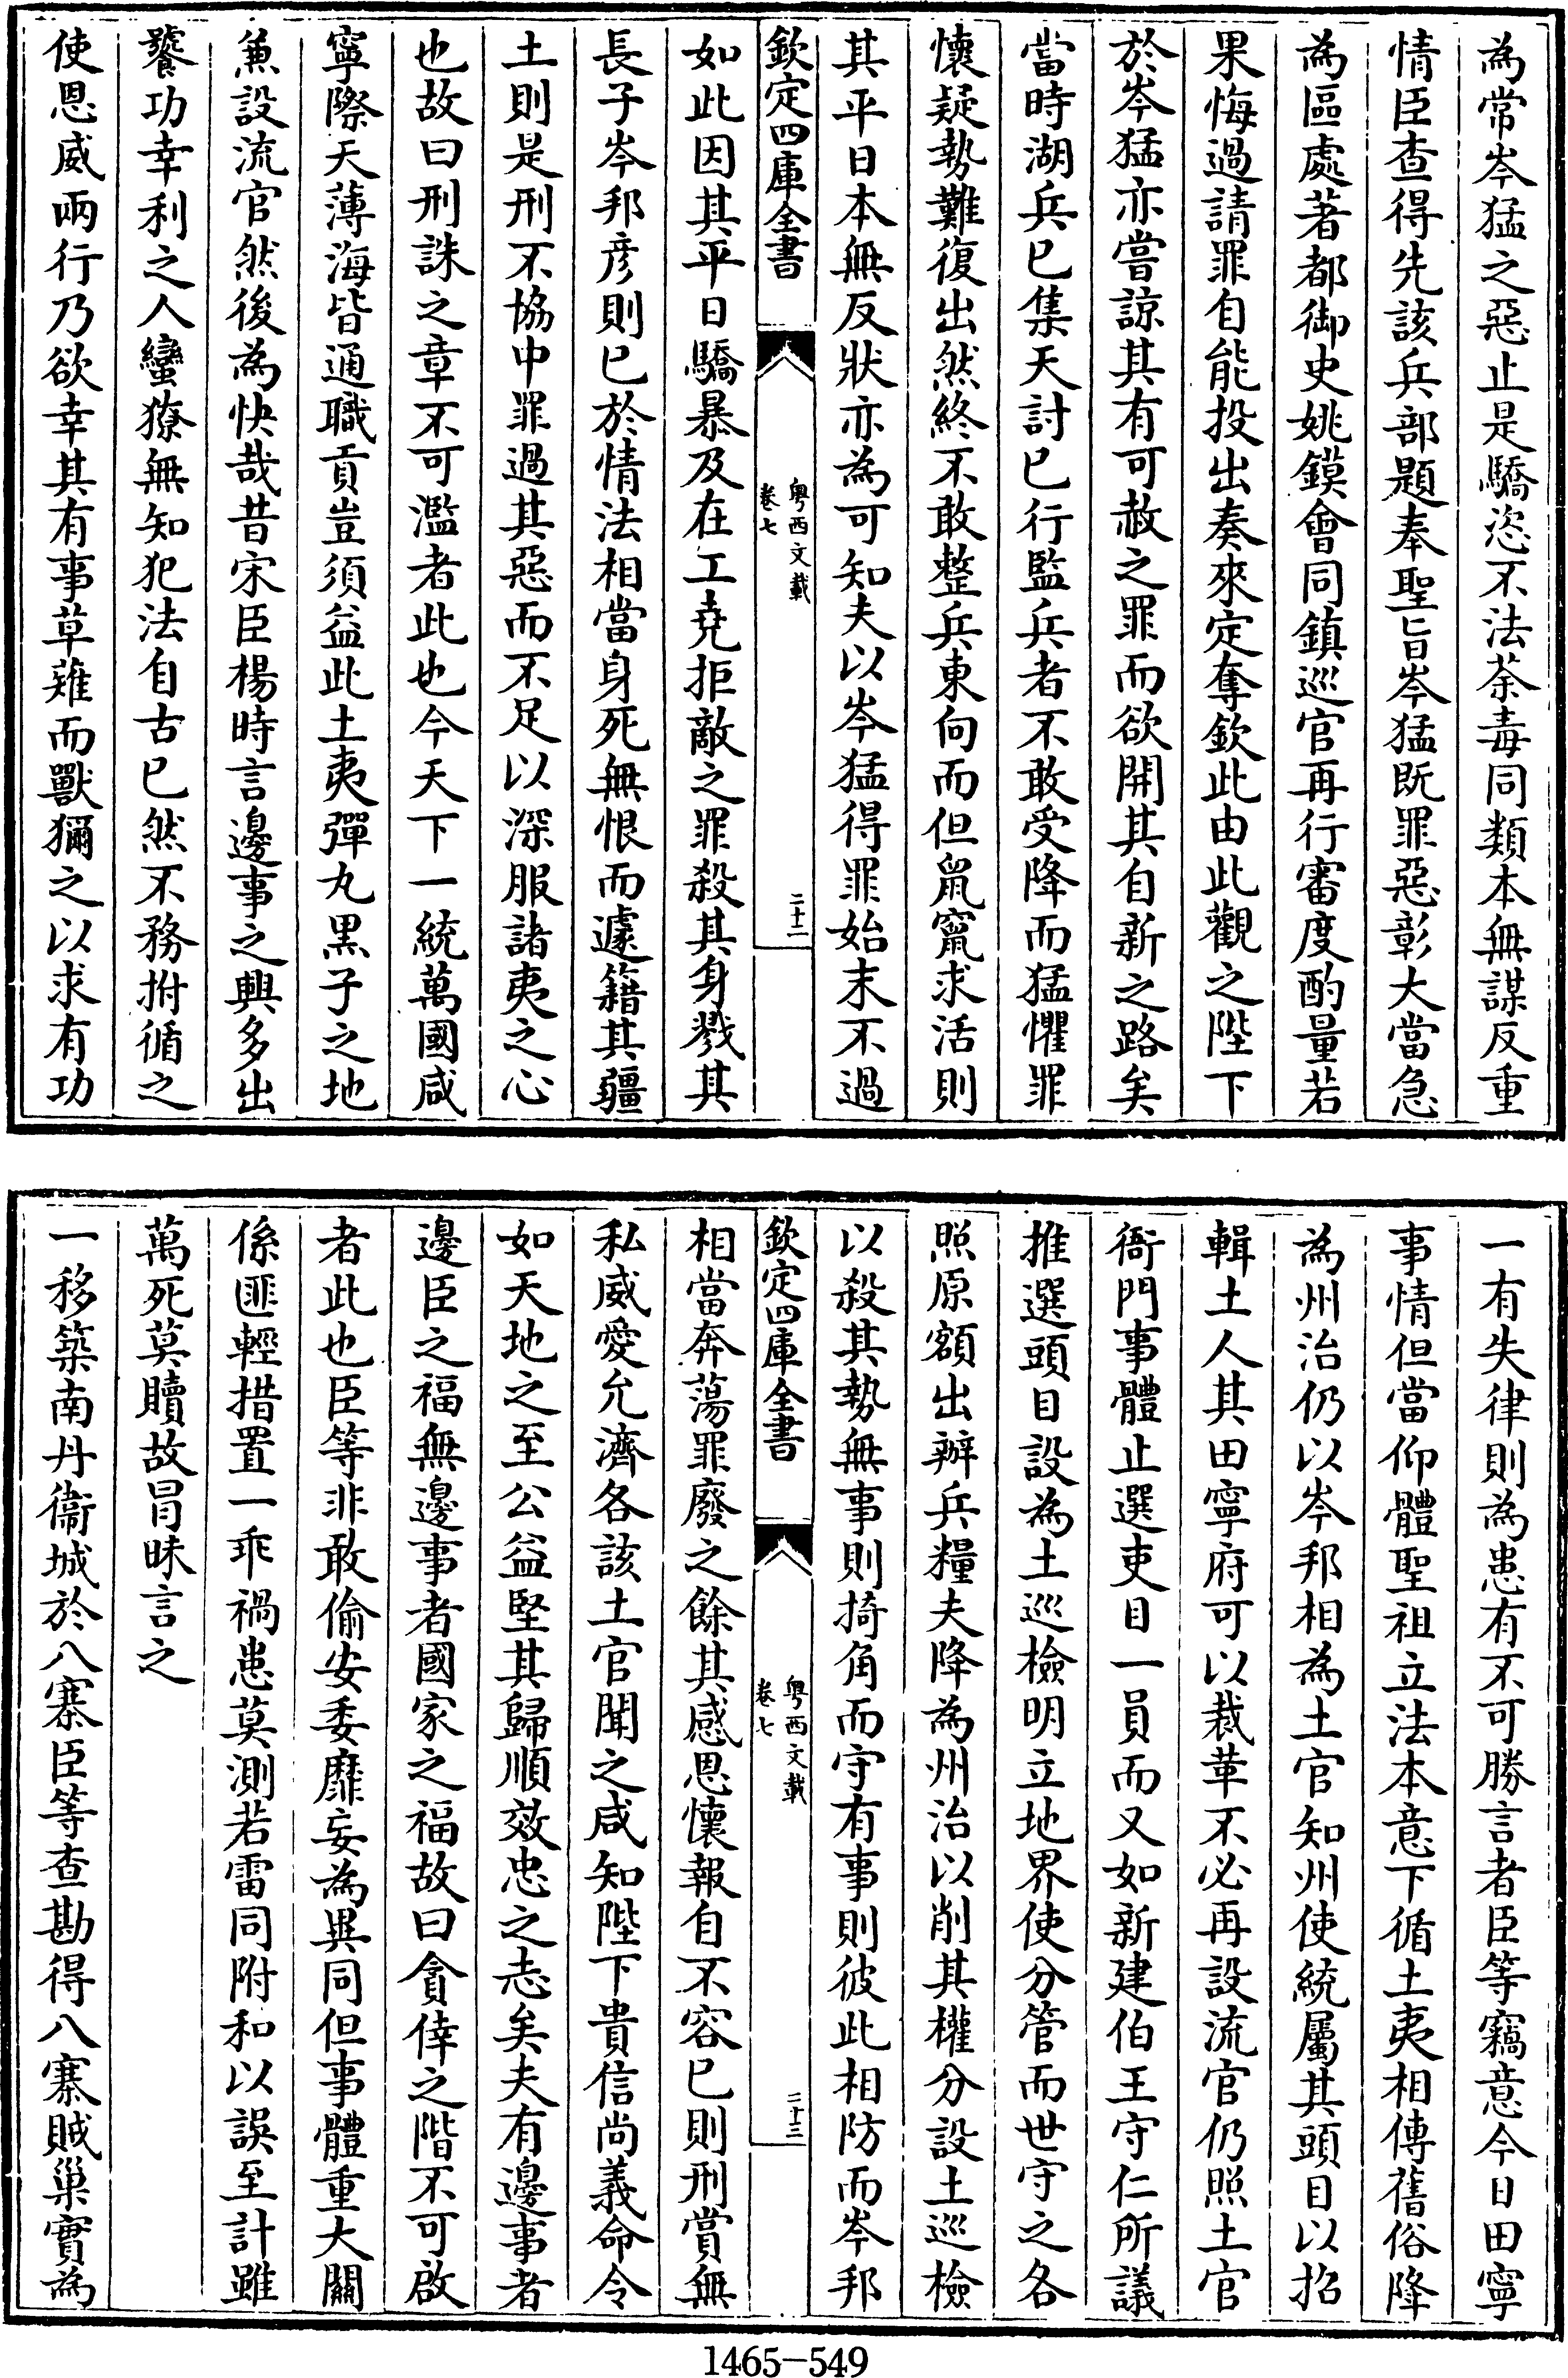 為常岑猛之惡止是驕恣不法荼毒同類本無謀反重
情臣查得先該兵部題奉聖旨岑猛既罪惡彰大當急
為區處著都御史姚鏌會同鎮巡官再行審度酌量若
果悔過請罪自能投出奏來定奪欽此由此觀之陛下
於岑猛亦嘗諒其有可赦之罪而欲開其自新之路矣
當時湖兵已集天討已行監兵者不敢受降而猛懼罪
懷疑勢難復出然終不敢整兵東向而但鼠竄求活則
其平日本無反狀亦為可知夫以岑猛得罪始末不過
欽定四庫全書
粵西文載
卷七
二十二
如此因其平日驕暴及在工堯拒敵之罪殺其身戮其
長子岑邦彦則已於情法相當身死無恨而遽籍其疆
土則是刑不協中罪過其惡而不足以深服諸夷之心
也故曰刑誅之章不可濫者此也今天下一統萬國咸
寧際天薄海皆通職貢豈須益此土夷彈丸黒子之地
兼設流官然後為快哉昔宋臣楊時言邊事之興多出
饕功幸利之人蠻獠無知犯法自古已然不務拊循之
使恩威兩行乃欲幸其有事草薙而獸獮之以求有功
一有失律則為患有不可勝言者臣等竊意今日田寧
事情但當仰體聖祖立法本意下循土夷相傳舊俗降
為州治仍以岑邦相為土官知州使統屬其頭目以招
輯土人其田寧府可以裁革不必再設流官仍照土官
衙門事體止選吏目一員而又如新建伯王守仁所議
推選頭目設為土巡檢明立地界使分管而世守之各
照原額出辦兵糧夫降為州治以削其權分設土巡檢
以殺其勢無事則掎角而守有事則彼此相防而岑邦
欽定四庫全書
粵西文載
卷七
二十三
相當奔蕩罪廢之餘其感恩懷報自不容已則刑賞無
私威愛允濟各該土官聞之咸知陛下貴信尚義命令
如天地之至公益堅其歸順效忠之志矣夫有邊事者
邊臣之福無邊事者國家之福故曰貪倖之階不可啟
者此也臣等非敢偷安委靡妄為異同但事體重大關
係匪輕措置一乖禍患莫測若雷同附和以誤至計雖
萬死莫贖故冒昧言之
一移築南丹衞城於八寨臣等查勘得八寨賊巢實為
1465-549